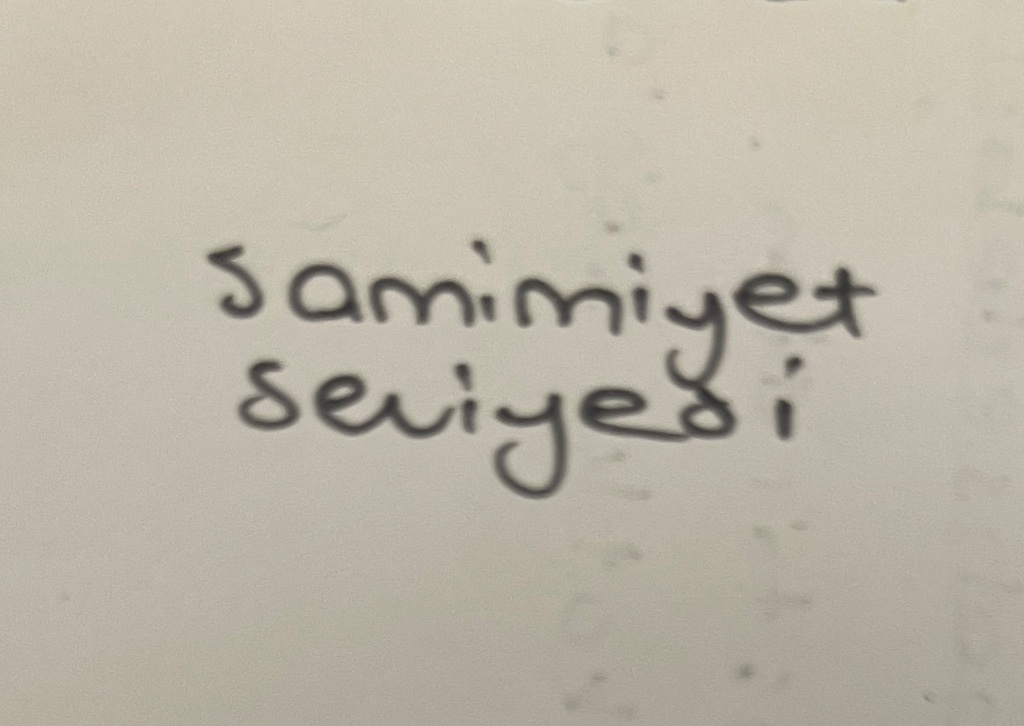 samimiyet
seviyesi